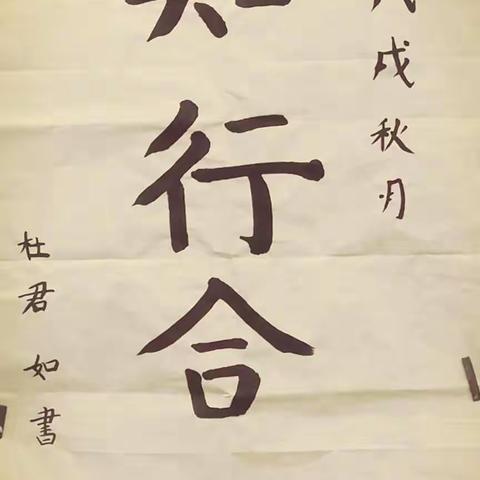 戌秋月
知行合
杜君如書